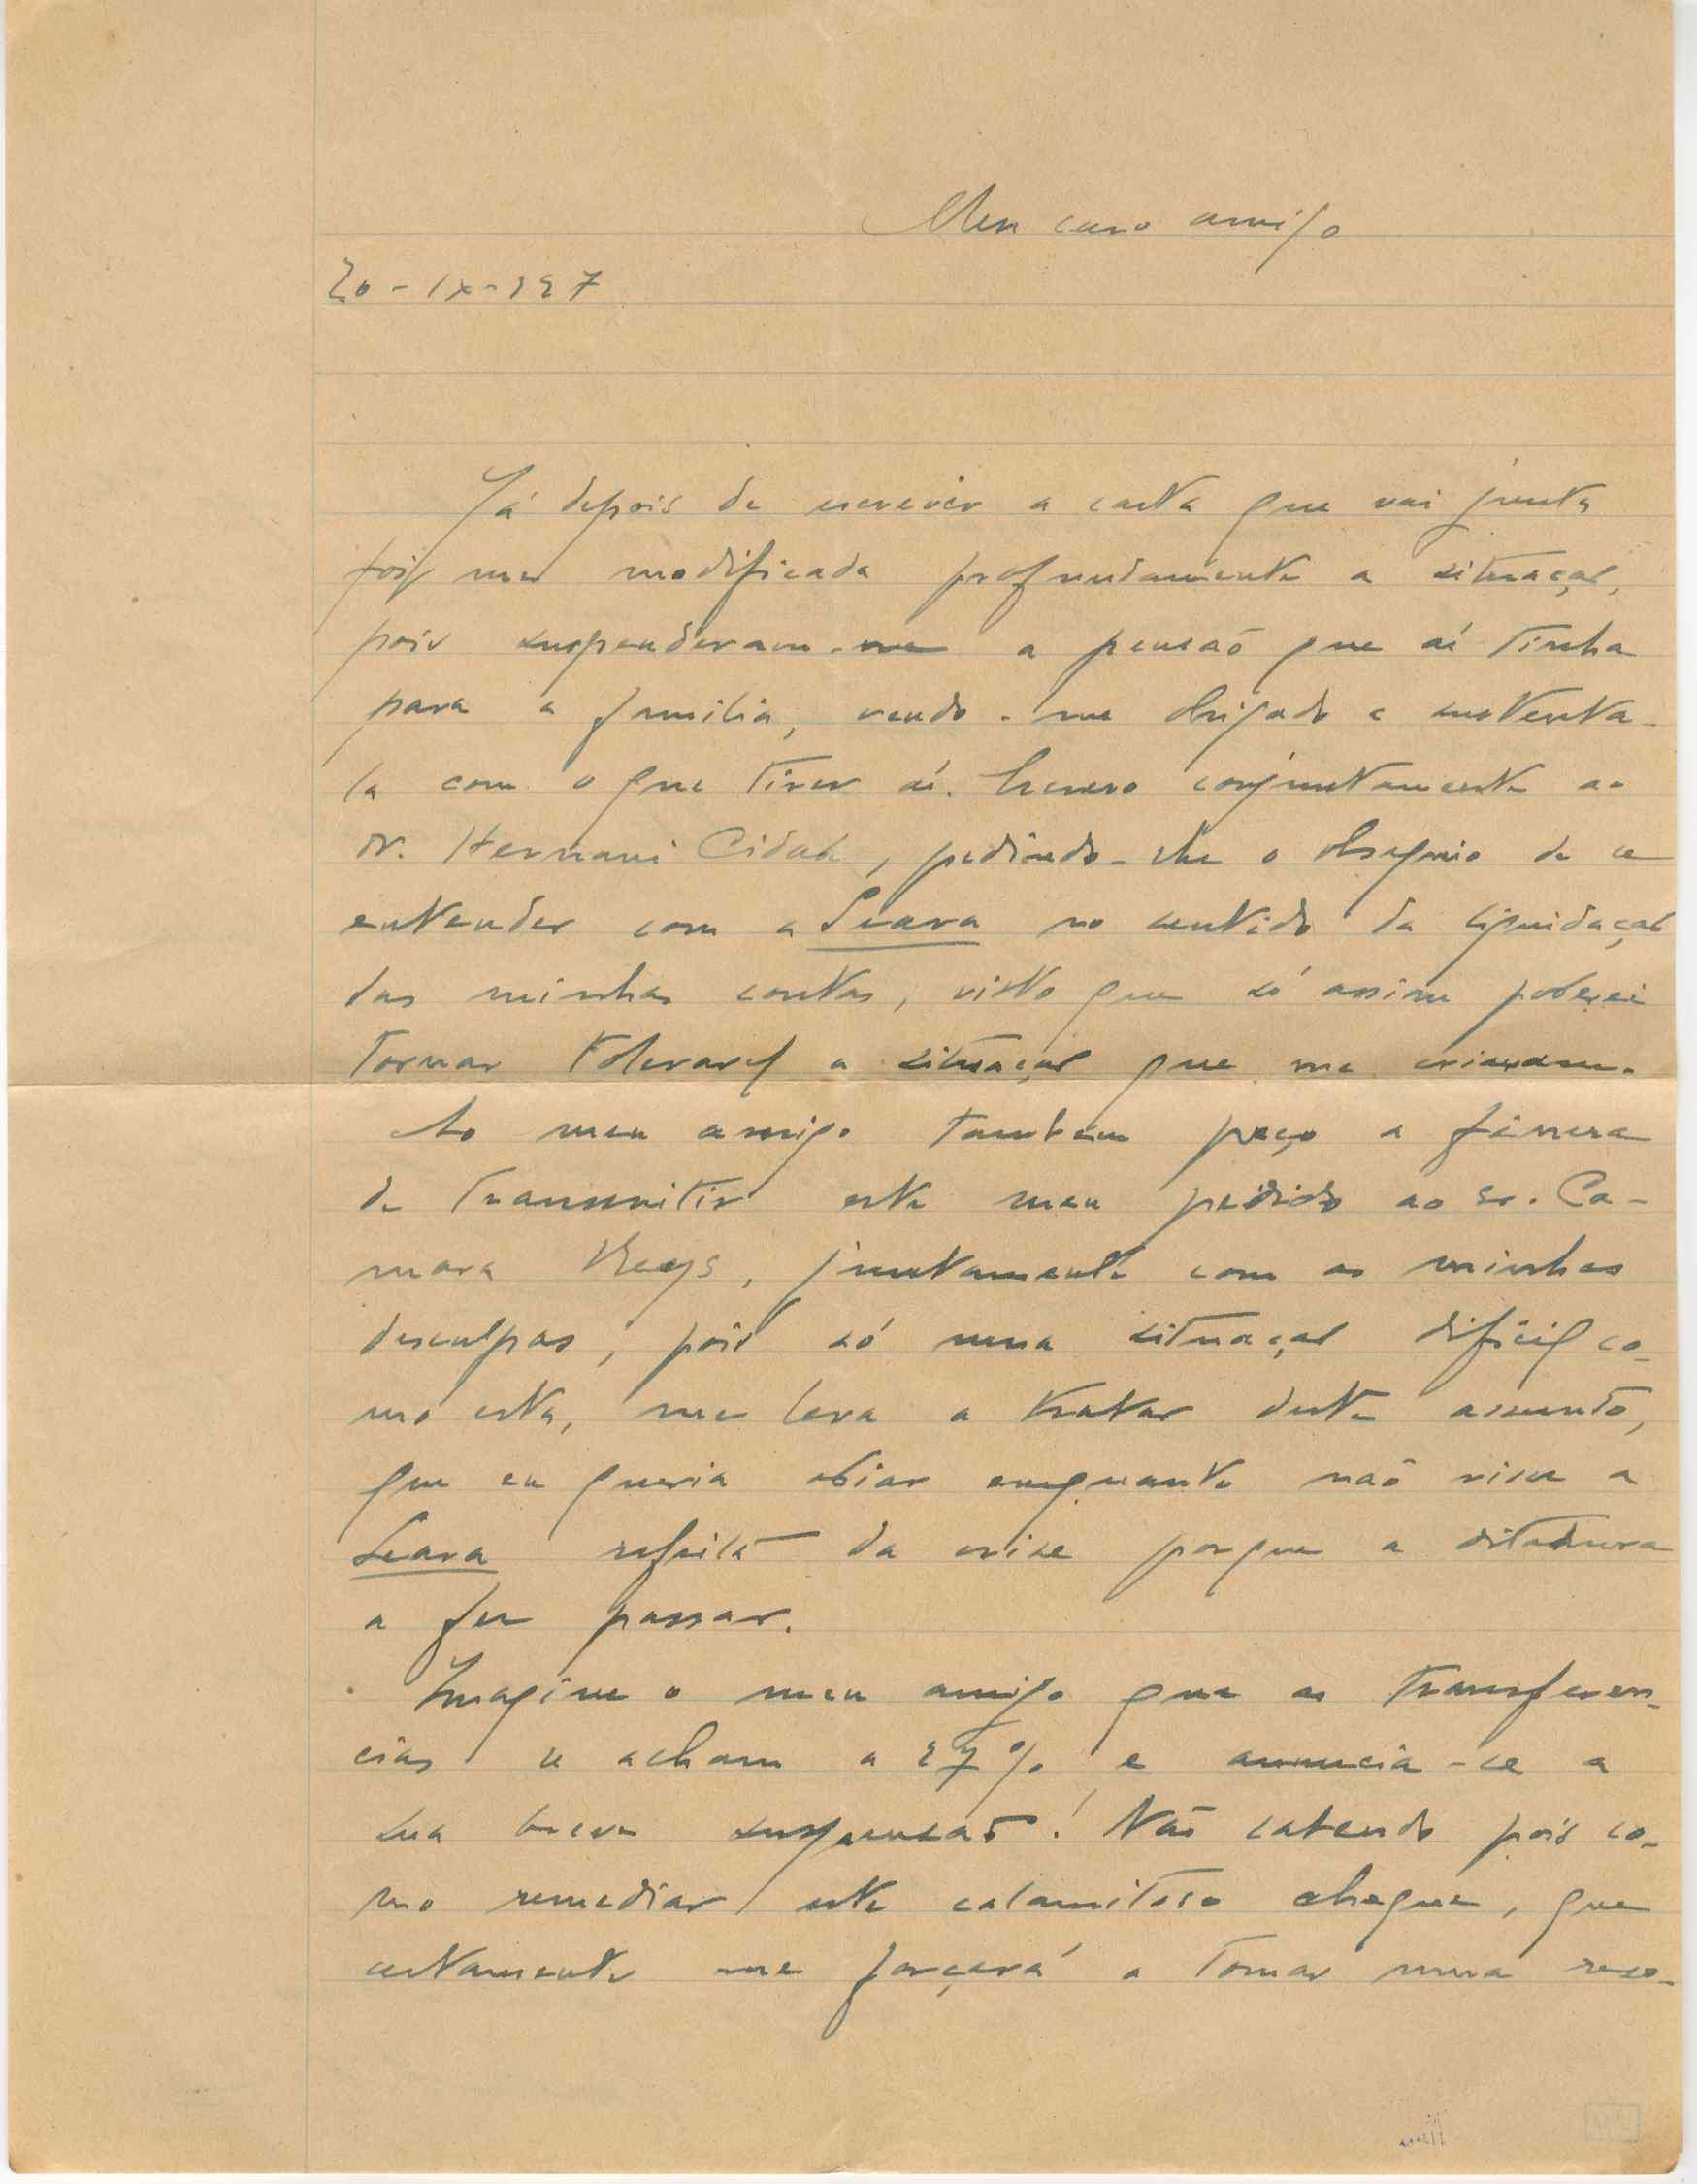 Meu caro amigo
20-IX-927
Já depois de escrever a carta que vai junta
foi me modificada profundamente a situação,
pois suspenderam-me a pensão que aí tinha
para a familia, vendo-me obrigado a sustenta-
la com o que tirar aí. Escrevo conjuntamente ao
dr. Hernani Cidade, pedindo-lhe o obsequio de se
entender com a Seara no sentido da liquidação
das minhas contas, visto que só assim poderei
tornar toleravel a situação que me criaram.
Ao meu amigo tambem peço a fineza
de transmitir este meu pedido ao sr. Ca-
mara Reys, juntamente com as minhas
desculpas, pois só uma situação dificil co-
mo esta, me leva a tratar deste assunto,
que eu queria adiar emquanto não visse a
Seara refeita da crise porque a ditadura
a fez passar.
Imagine o meu amigo que as transferen-
cias se acham a 27% e anuncia-se a
sua breve suspensão! Não sabendo pois co-
mo remediar este calamitoso cheque, que
certamente me forçará a tomar uma reso-